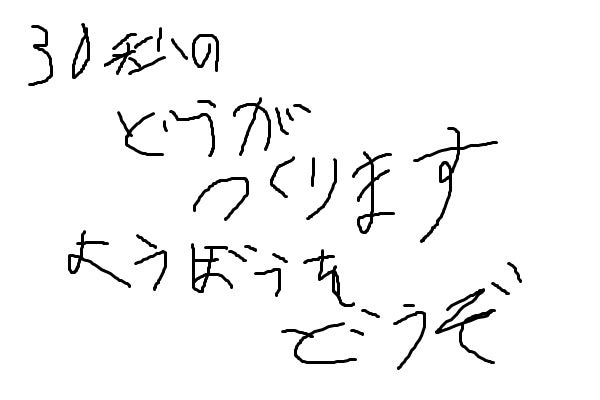 30秒の
どうが
つくります
ようぼうを
どうぞ